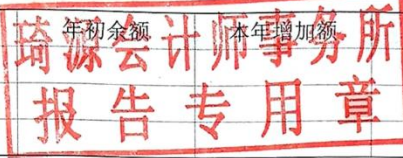 年初余额 本年增加额
琦源会计师事务所
报告专用章